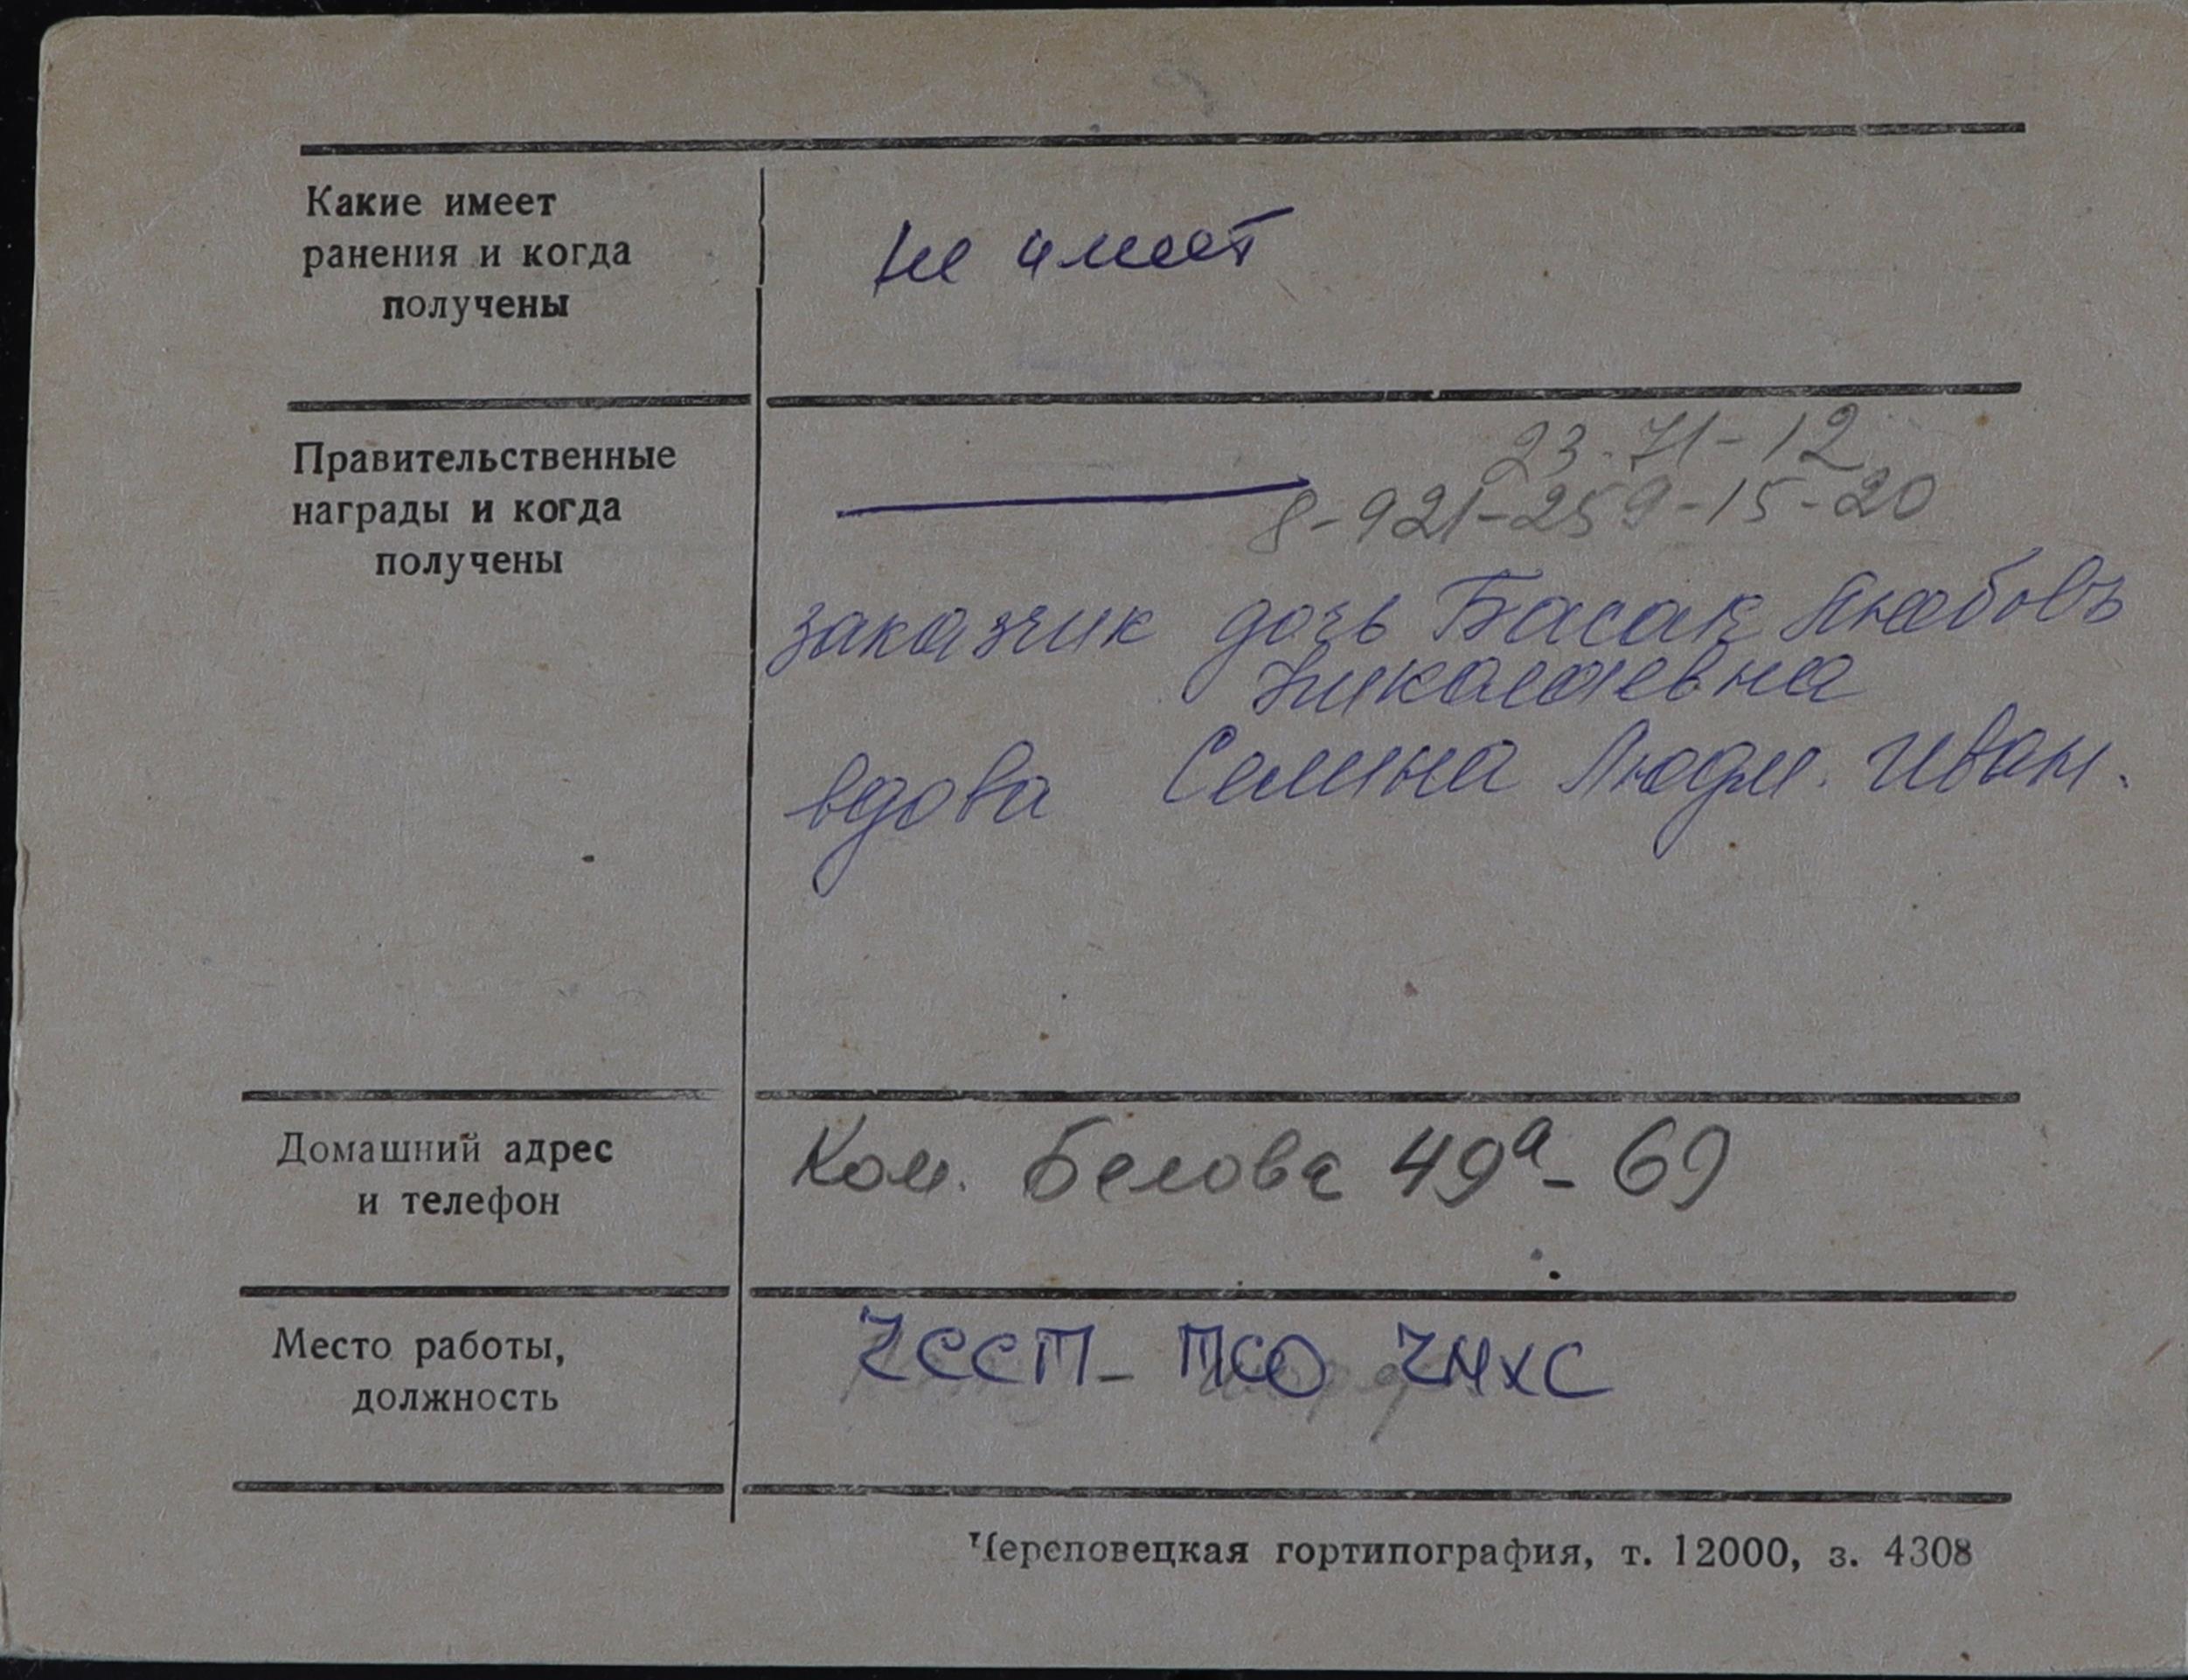 Какие имеет
ранения и когда
получены
не имеет
Правительственные
награды и когда
получены
23-71-12
8-921-259-15-20
заказчик дочь Басак Любовь
Николаевна
вдова Селина Людм. Иван.
Домашний адрес
и телефон
Ком. Белова 49а-69
Место работы,
должность
ЧССП- ПСО ЧМХС
Череповецкая гортипография, т. 12000, з. 4308